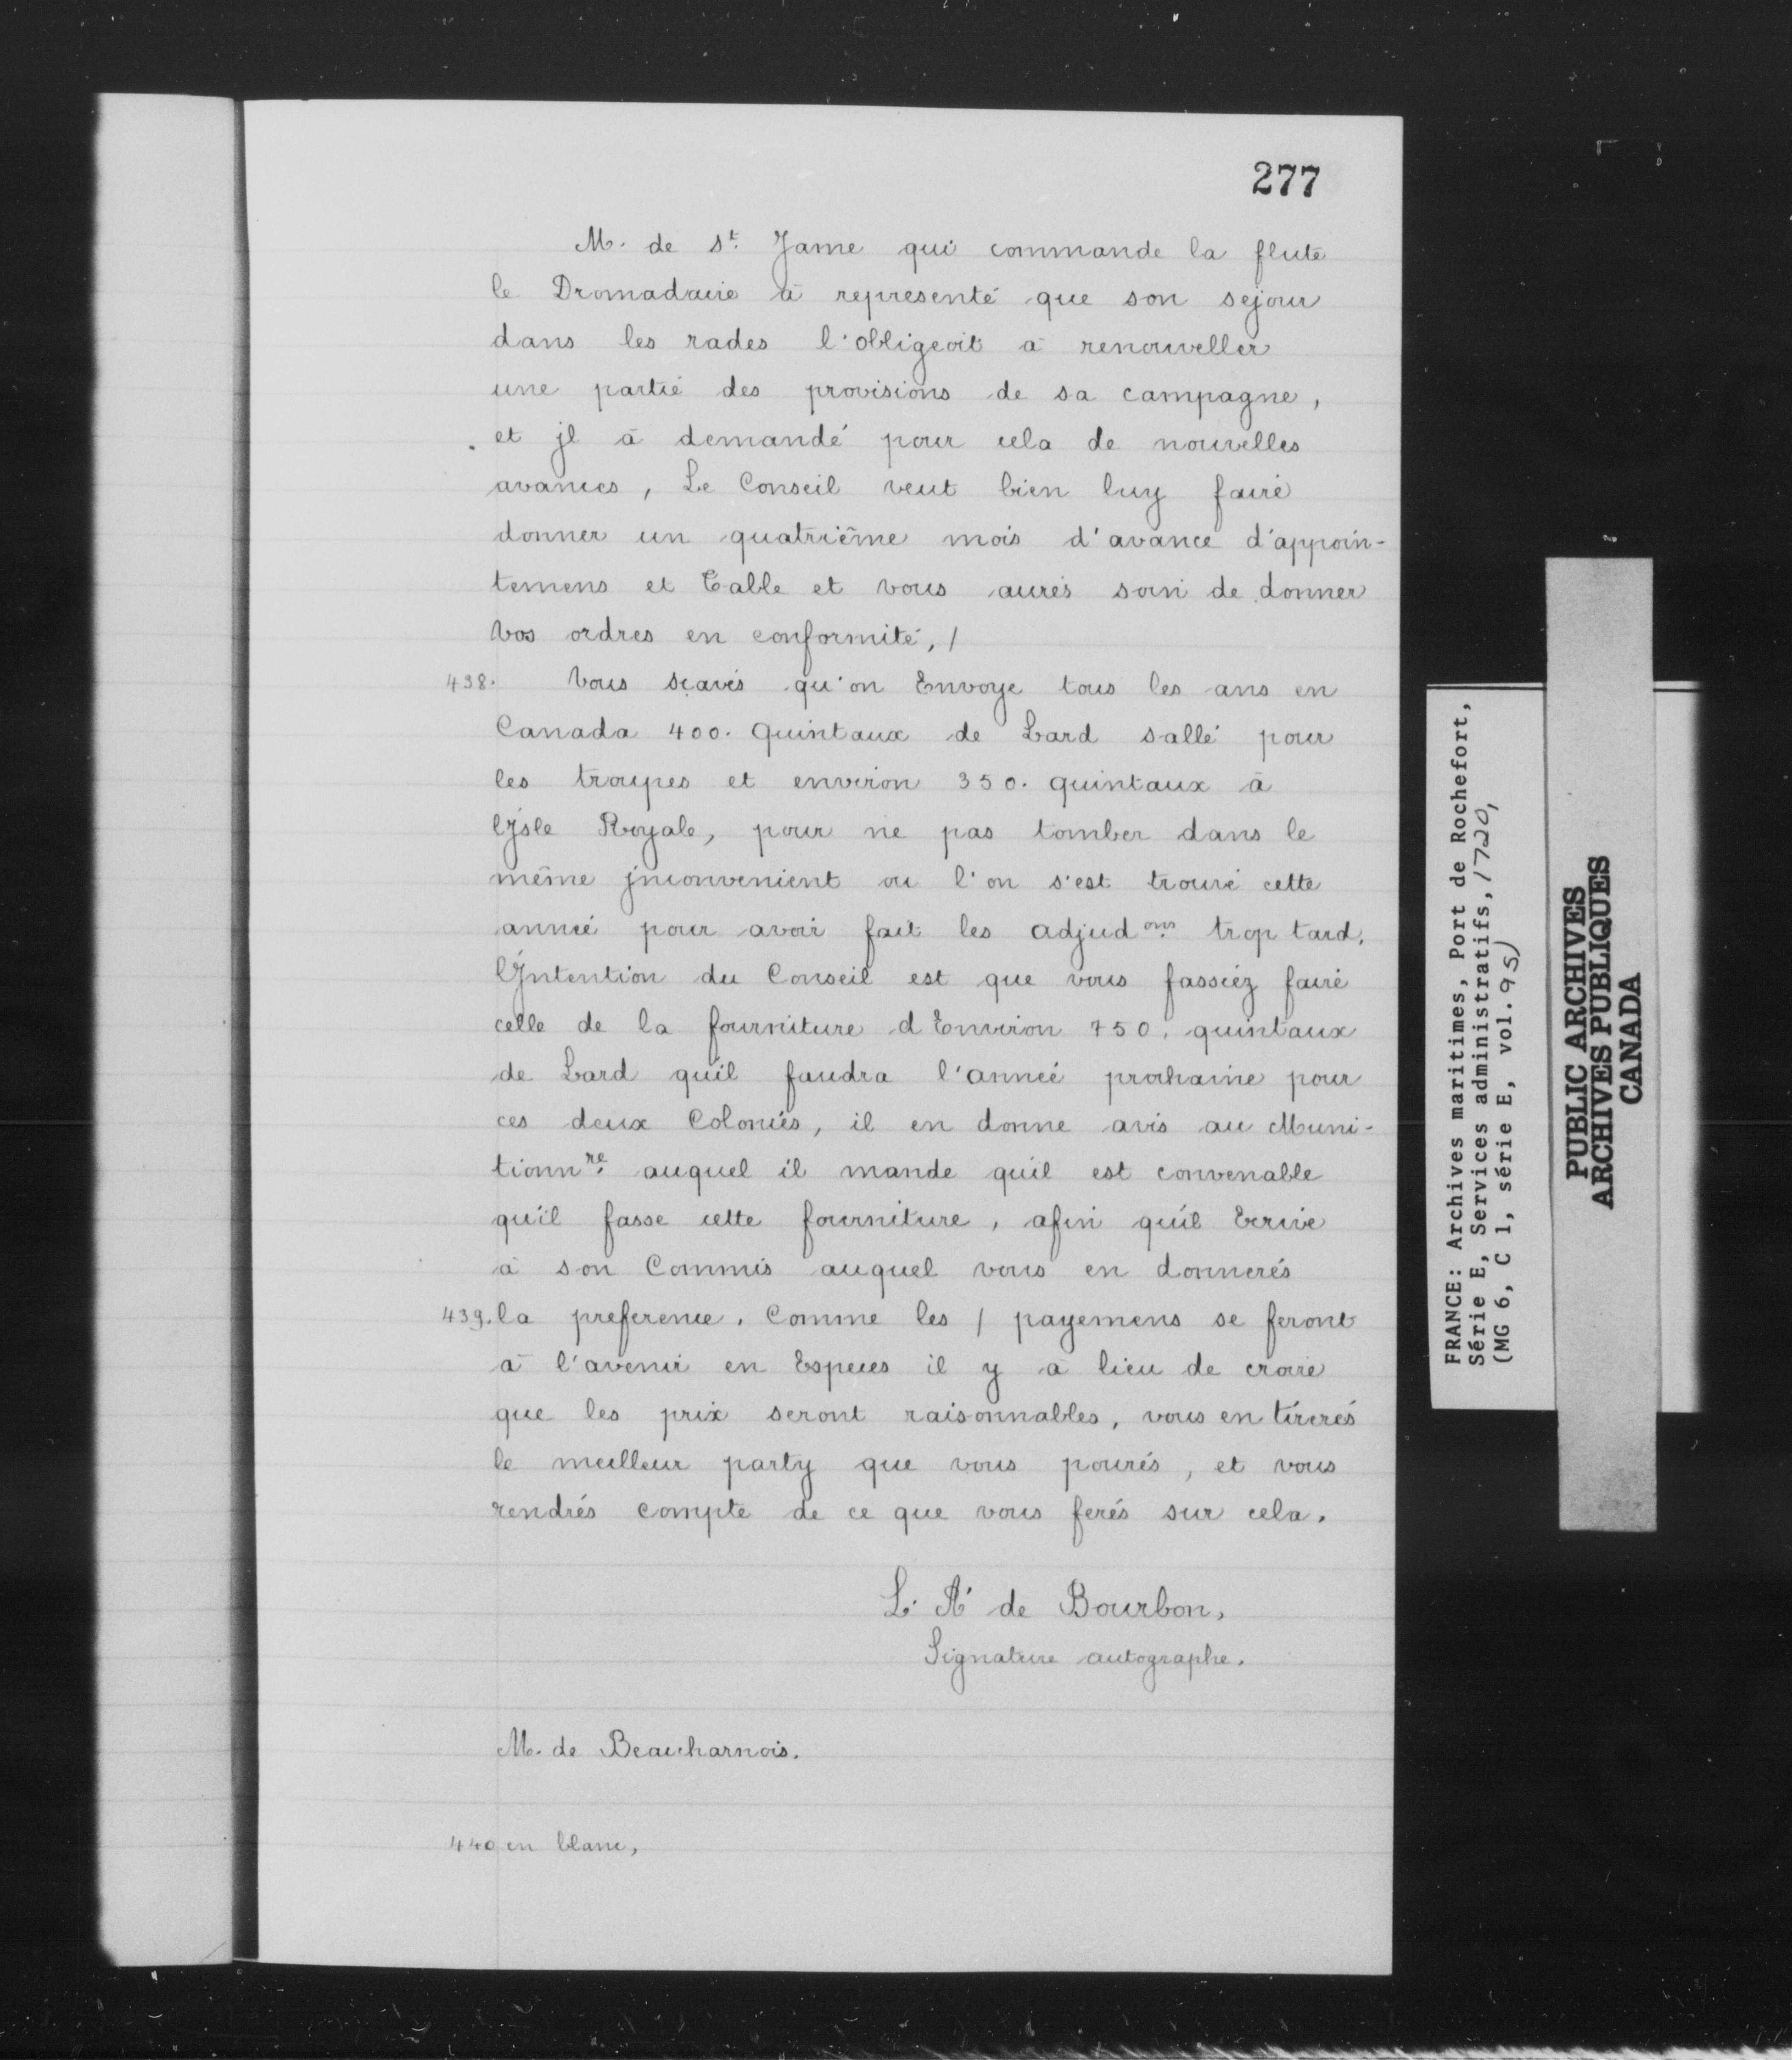 277
M. de St. Jame qui commande la flute
le Dromadaire à representé que son sejour
dans les rades l'obligeoit a renouveller
une partie des provisions de sa campagne,
et jl à demandé pour cela de nouvelles
avances, Le Conseil veut bien luy faire
donner un quatriême mois d'avance d'appoin-
temens et Table et vous aurés soin de donner
vos ordres en conformité, /
438. Vous sçavés qu'on Envoye tous les ans en
Canada 400. Quintaux de Lard sallé pour
les troupes et environ 350. quintaux à
l'Jsle Royale, pour ne pas tomber dans le
même jnconvenient ou l'on s'est trouvé cette
année pour avoir fait les adjudons. trop tard.
l'Jntention du Conseil est que vous fassiéz faire
celle de la fourniture d Environ 750. quintaux
de Lard qu'il faudra l'année prochaine pour
ces deux Colonies, il en donne avis au Muni-
tionnre. auquel il mande qu'il est convenable
qu'il fasse cette fourniture, afin qu'il Ecrive
à son Commis auquel vous en donnerés
439. la preference. Comme les / payemens se feront
à l'avenir en Especes il y à lieu de croire
que les prix seront raisonnables, vous en tirerés
le meilleur party que vous pourés, et vous
rendrés compte de ce que vous ferés sur cela.
L. A. de Bourbon,
Signature autographe.
M. de Beaucharnois.
440 en blanc,
FRANCE: Archives maritimes, Port de Rochefort,
Série E, Services administratifs, 1720,
(MG 6, C 1, série E, vol. 95)
PUBLIC ARCHIVES
ARCHIVES PUBLIQUES
CANADA